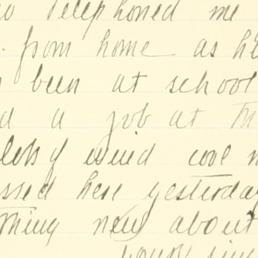 telephoned me
from home as he
been at school
a job at
of wind cool
here yesterday
new about